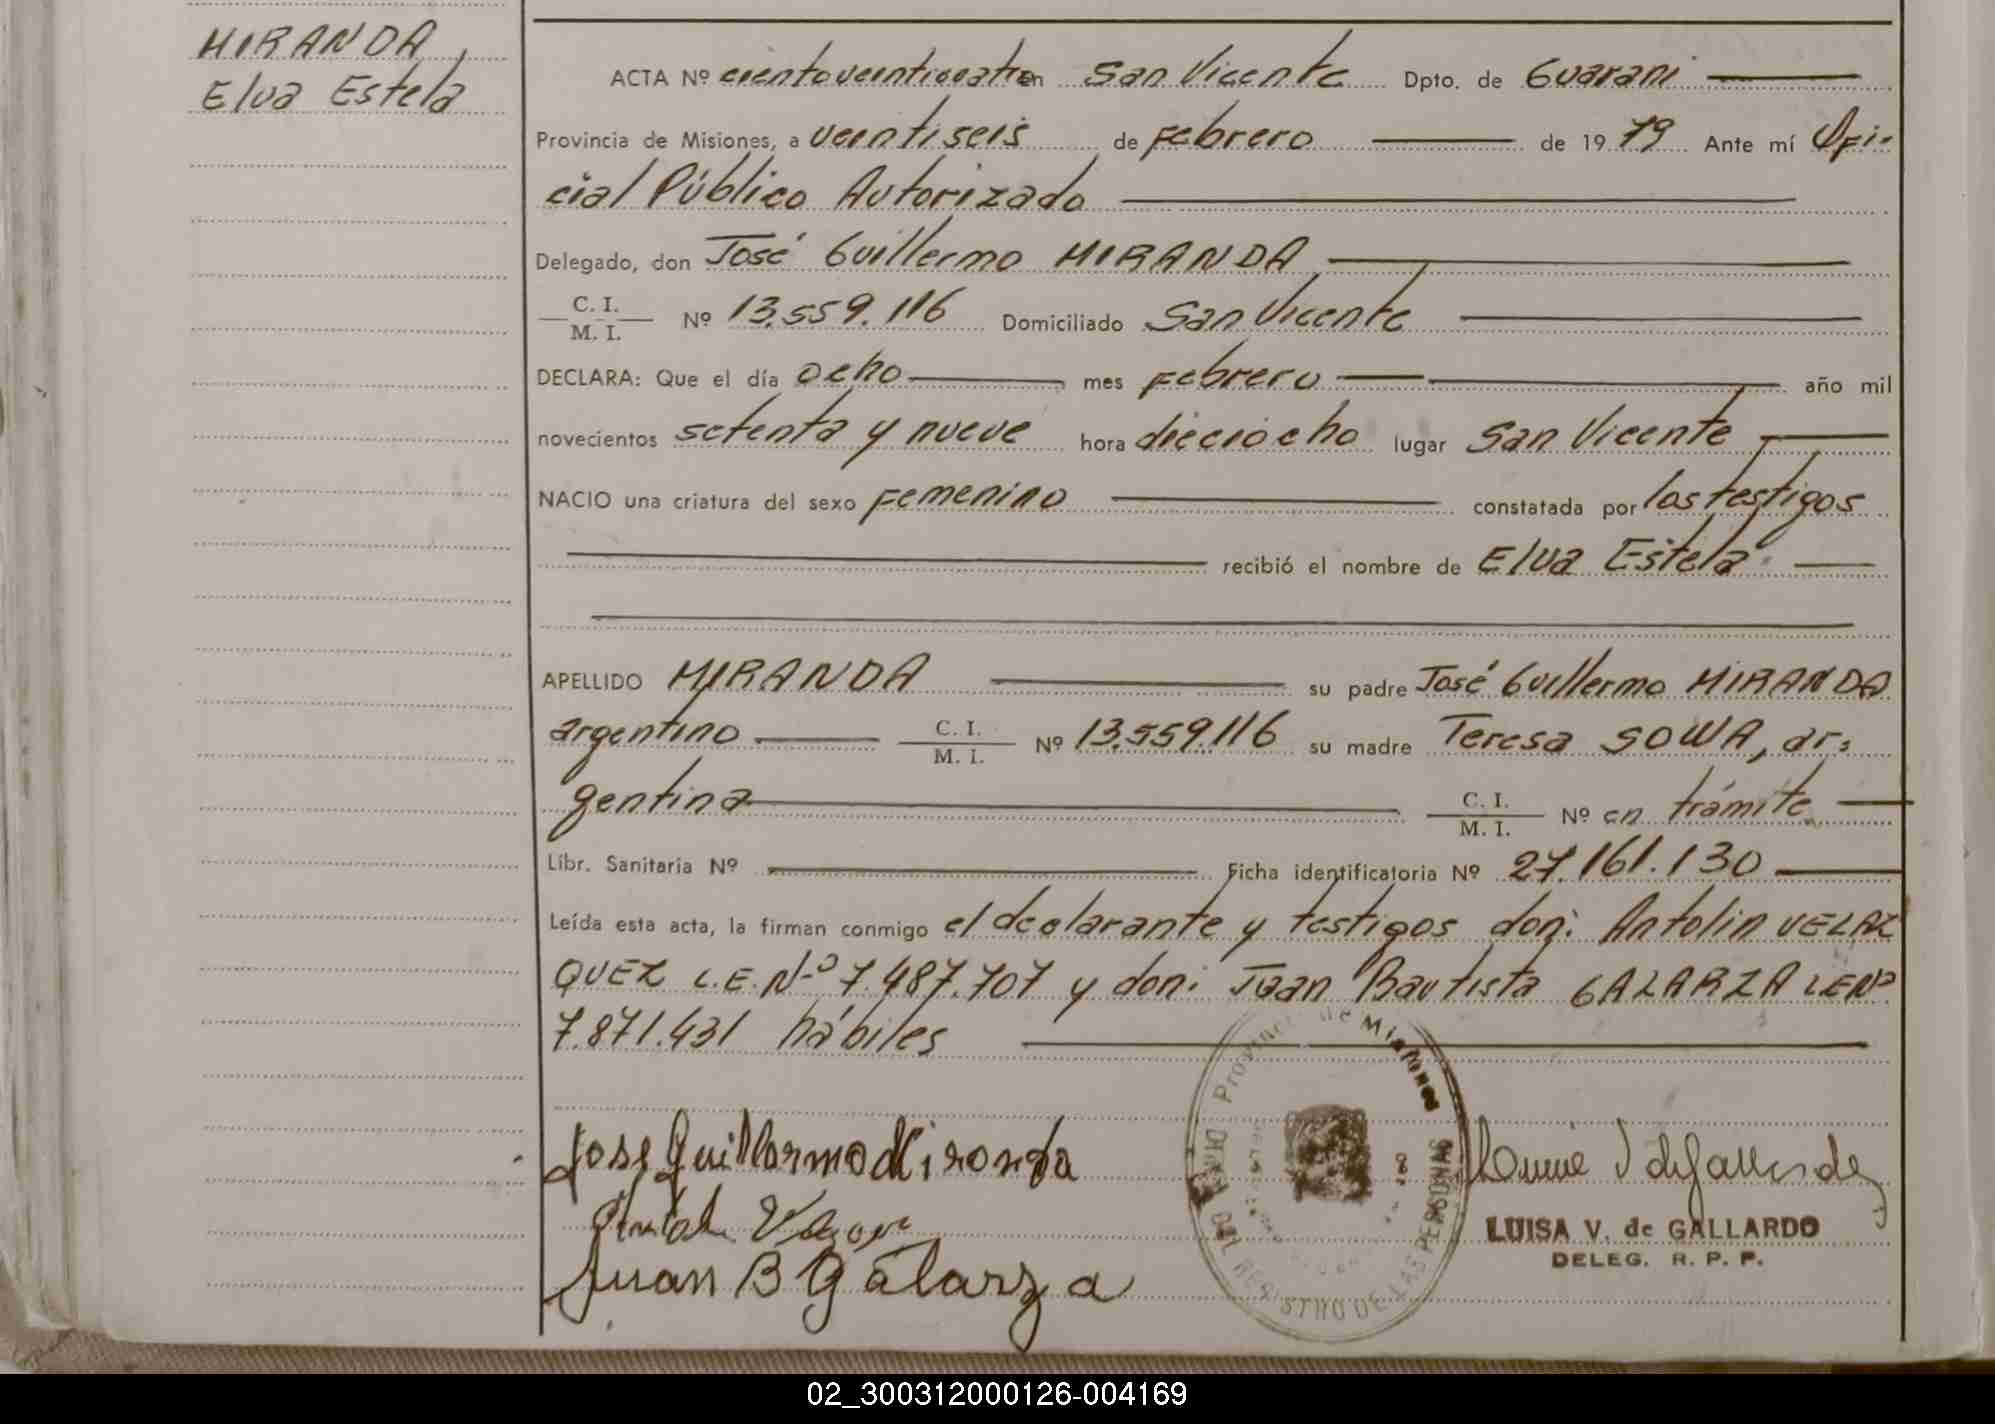 MIRANDA,
Elva Estela
ACTA Nº cientoveinticuatro en San Vicente Dpto. de Guaraní
Provincia de Misiones, a veintiseis de Febrero de 1979 Ante mí Ofi-
cial Público Autorizado
Delegado, don José Guillermo MIRANDA
C. I.
M. I. Nº 13.559.116 Domiciliado San Vicente
DECLARA: Que el día ocho mes Febrero año mil
novecientos setenta y nueve hora dieciocho lugar San Vicente
NACIO una criatura del sexo Femenino constatada por los testigos
recibió el nombre de Elva Estela
APELLIDO MIRANDA su padre José Guillermo MIRANDA
argentino C. I. M. I. Nº 13.559.116 su madre Teresa SOWA, ar-
gentina C. I. M. I. Nº en trámite
Libr. Sanitaria Nº Ficha identificatoria Nº 27.161.130
Leída esta acta, la firman conmigo el declarante y testigos don: Antolin VELAZ
QUEZ L.E.Nº 7.487.707 y don: Juan Bautista GALARZA LENº
7.871.431 hábiles
Provincia de Misiones
REGISTRO DE LAS PERSONAS
Jose Guillermo Miranda
Juan B Galarza
LUISA V. de GALLARDO
DELEG. R. P. P.
02_300312000126-004169